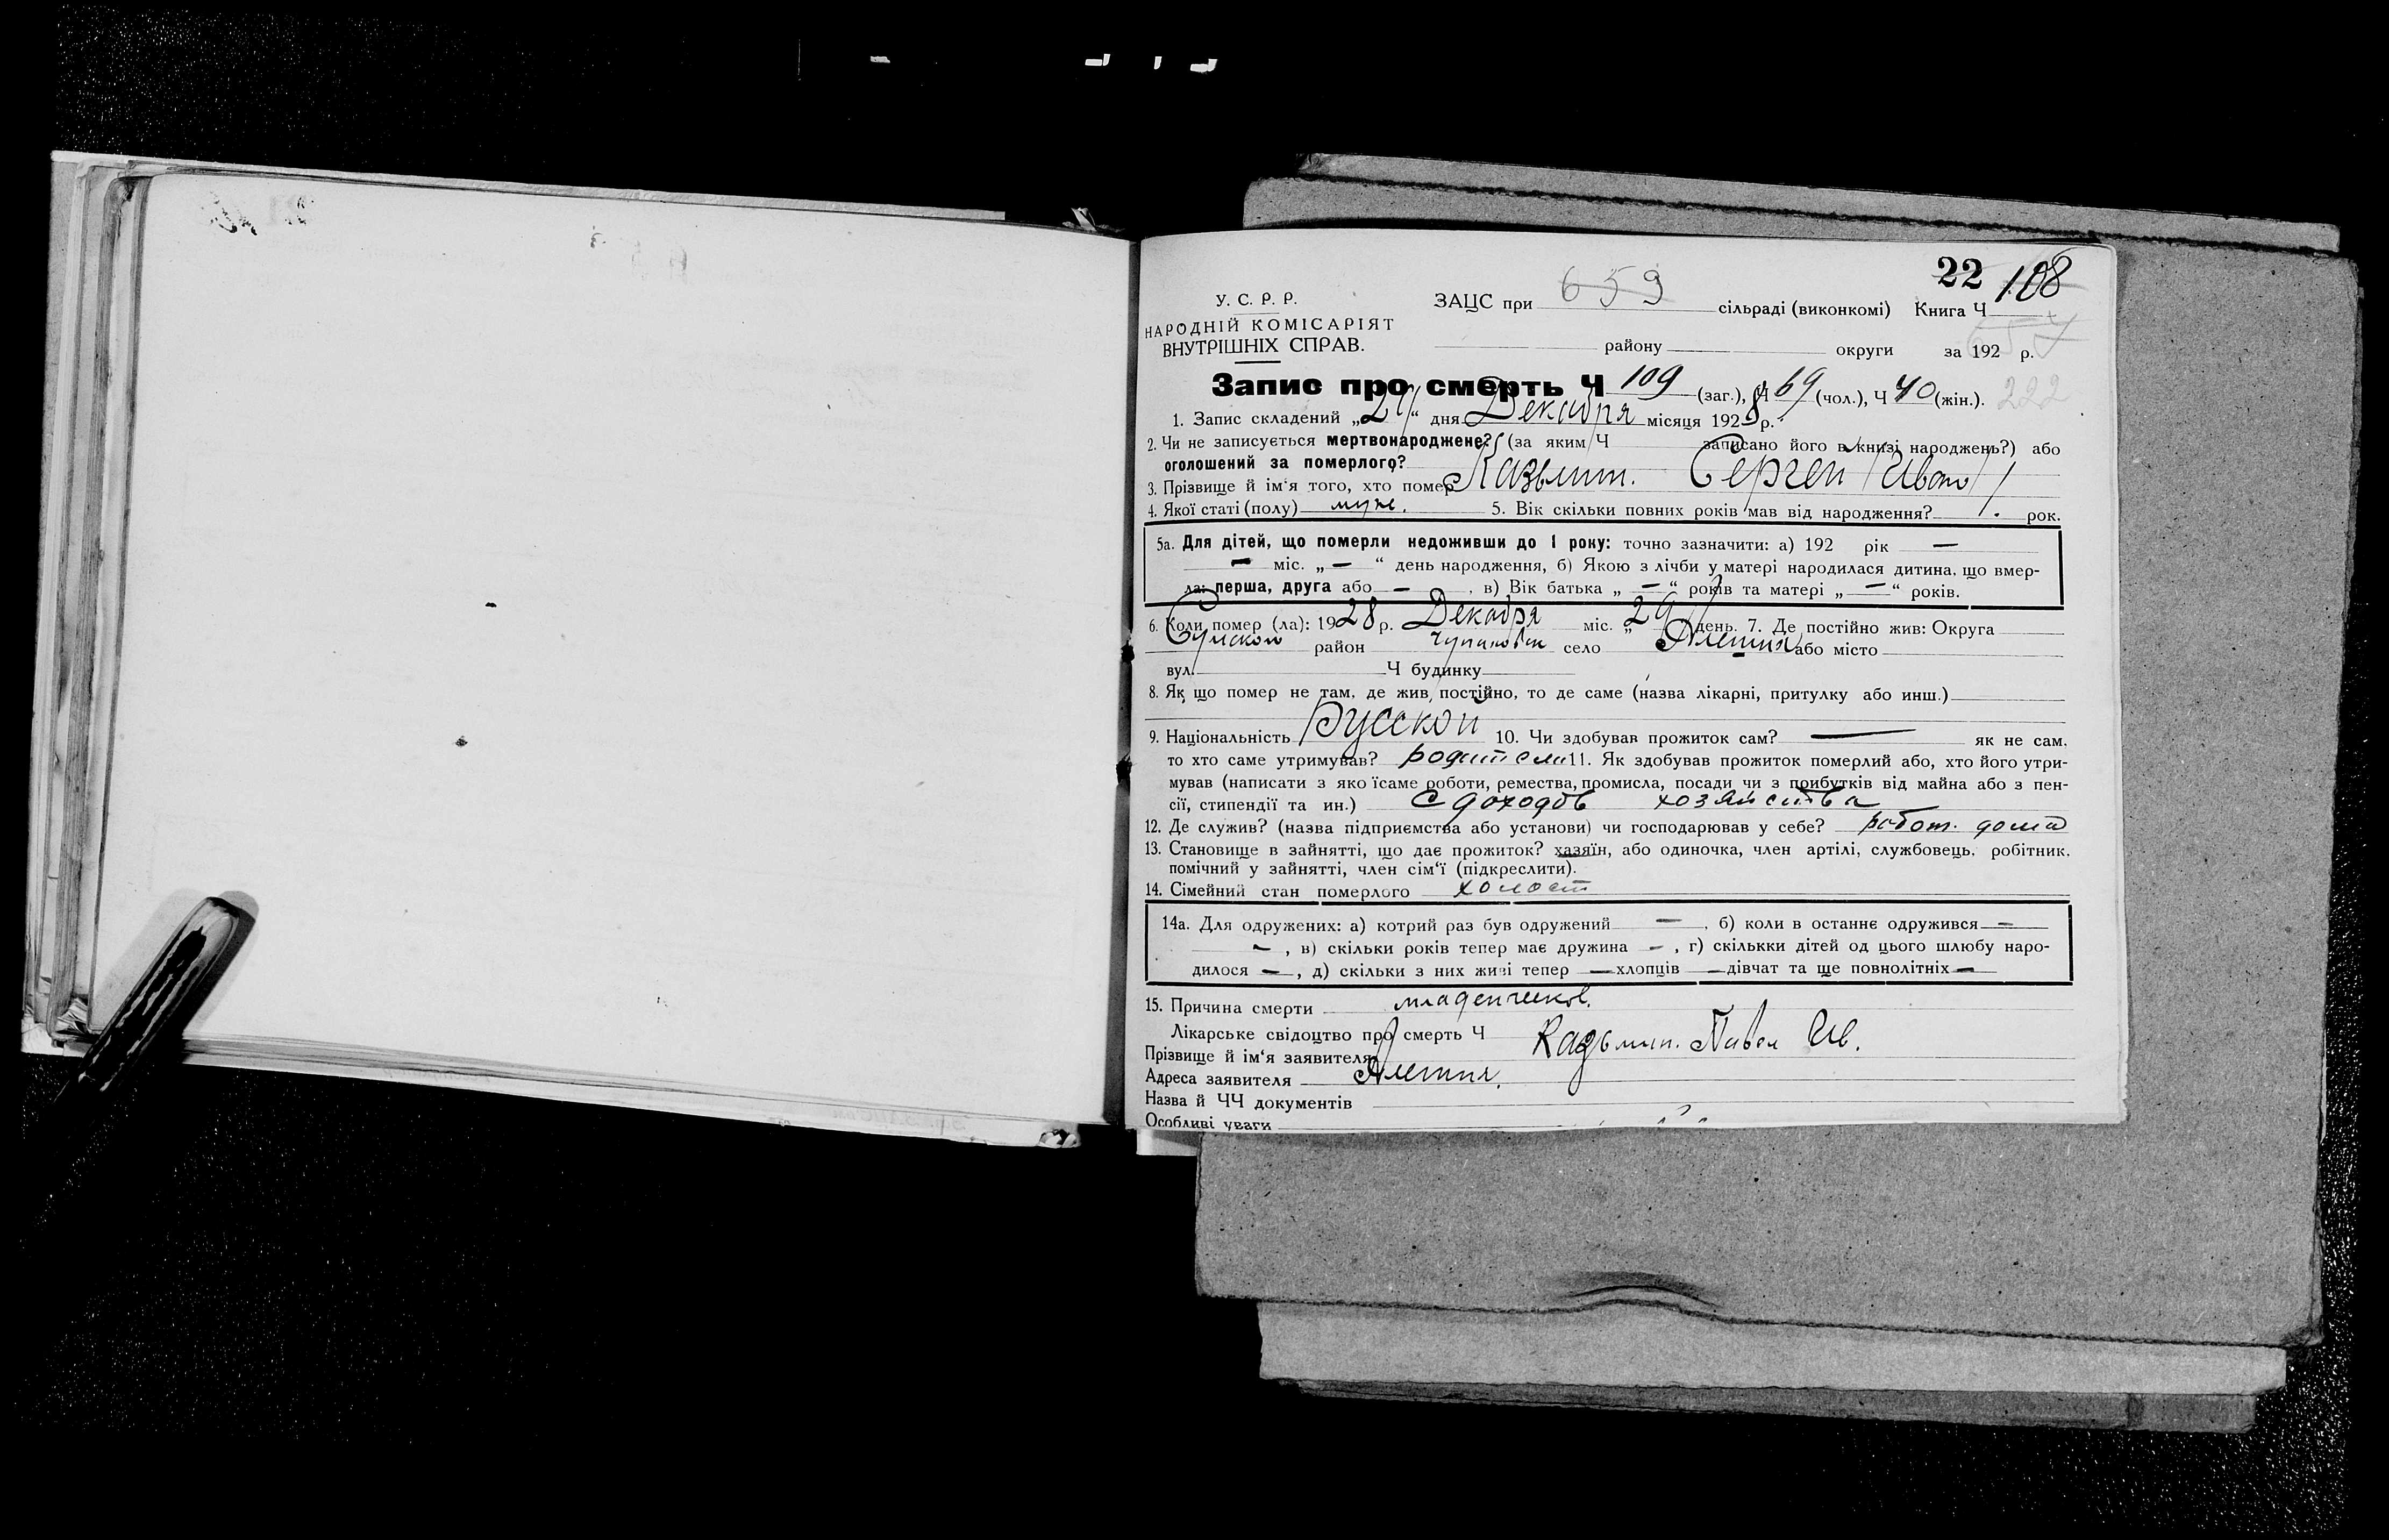 22 108
У. С. Р. Р.
НАРОДНІЙ КОМІСАРІЯТ
ВНУТРІШНІХ СПРАВ.
ЗАЦС при 659 сільраді (виконкомі) Книга Ч
району округи за 192 р.
Запис про смерть Ч 109 (заг.), Ч 69 (чол.), Ч 40 (жін.). 222
1. Запис складений „29“ дня Декабря місяця 1928 р.
2. Чи не записується мертвонароджене? (за яким Ч записано його в книзі народжень?) або
оголошений за померлого?
3. Прізвище й ім‘я того, хто помер Казьмин. Сергей Иван
4. Якої статі (полу) муж. 5. Вік скільки повних років мав від народження? 1. рок.
5а. Для дітей, що померли недоживши до 1 року: точно зазначити: а) 192 рік —
— міс. „—“ день народження, б) Якою з лічби у матері народилася дитина, що вмер-
ла: перша, друга або —, в) Вік батька „—“ років та матері „—“ років.
6. Коли помер (ла): 1928 р. Декабря міс. „29 день. 7. Де постійно жив: Округа
Сумской район село Алешня або місто
вул. Ч будинку
8. Як що помер не там, де жив постійно, то де саме (назва лікарні, притулку або инш.)
9. Національність Русской 10. Чи здобував прожиток сам? — як не сам,
то хто саме утримував? родители 11. Як здобував прожиток померлий або, хто його утри-
мував (написати з яко їсаме роботи, ремества, промисла, посади чи з прибутків від майна або з пен-
сії, стипендії та ин.) С доходов хозяйства
12. Де служив? (назва підприємства або установи) чи господарював у себе? работ. дома
13. Становище в зайнятті, що дає прожиток? хазяїн, або одиночка, член артілі, службовець, робітник.
помічний у зайнятті, член сім‘ї (підкреслити).
14. Сімейний стан померлого холост
14а. Для одружених: а) котрий раз був одружений —, б) коли в останнє одружився —
—, в) скільки років тепер має дружина —, г) скількки дітей од цього шлюбу наро-
дилося —, д) скільки з них живі тепер — хлопців — дівчат та ще повнолітніх —
15. Причина смерти младенческ.
Лікарське свідоцтво про смерть Ч
Прізвище й ім‘я заявителя Казьмин. Павел Ив.
Адреса заявителя Алешня.
Назва й ЧЧ документів
Особливі уваги